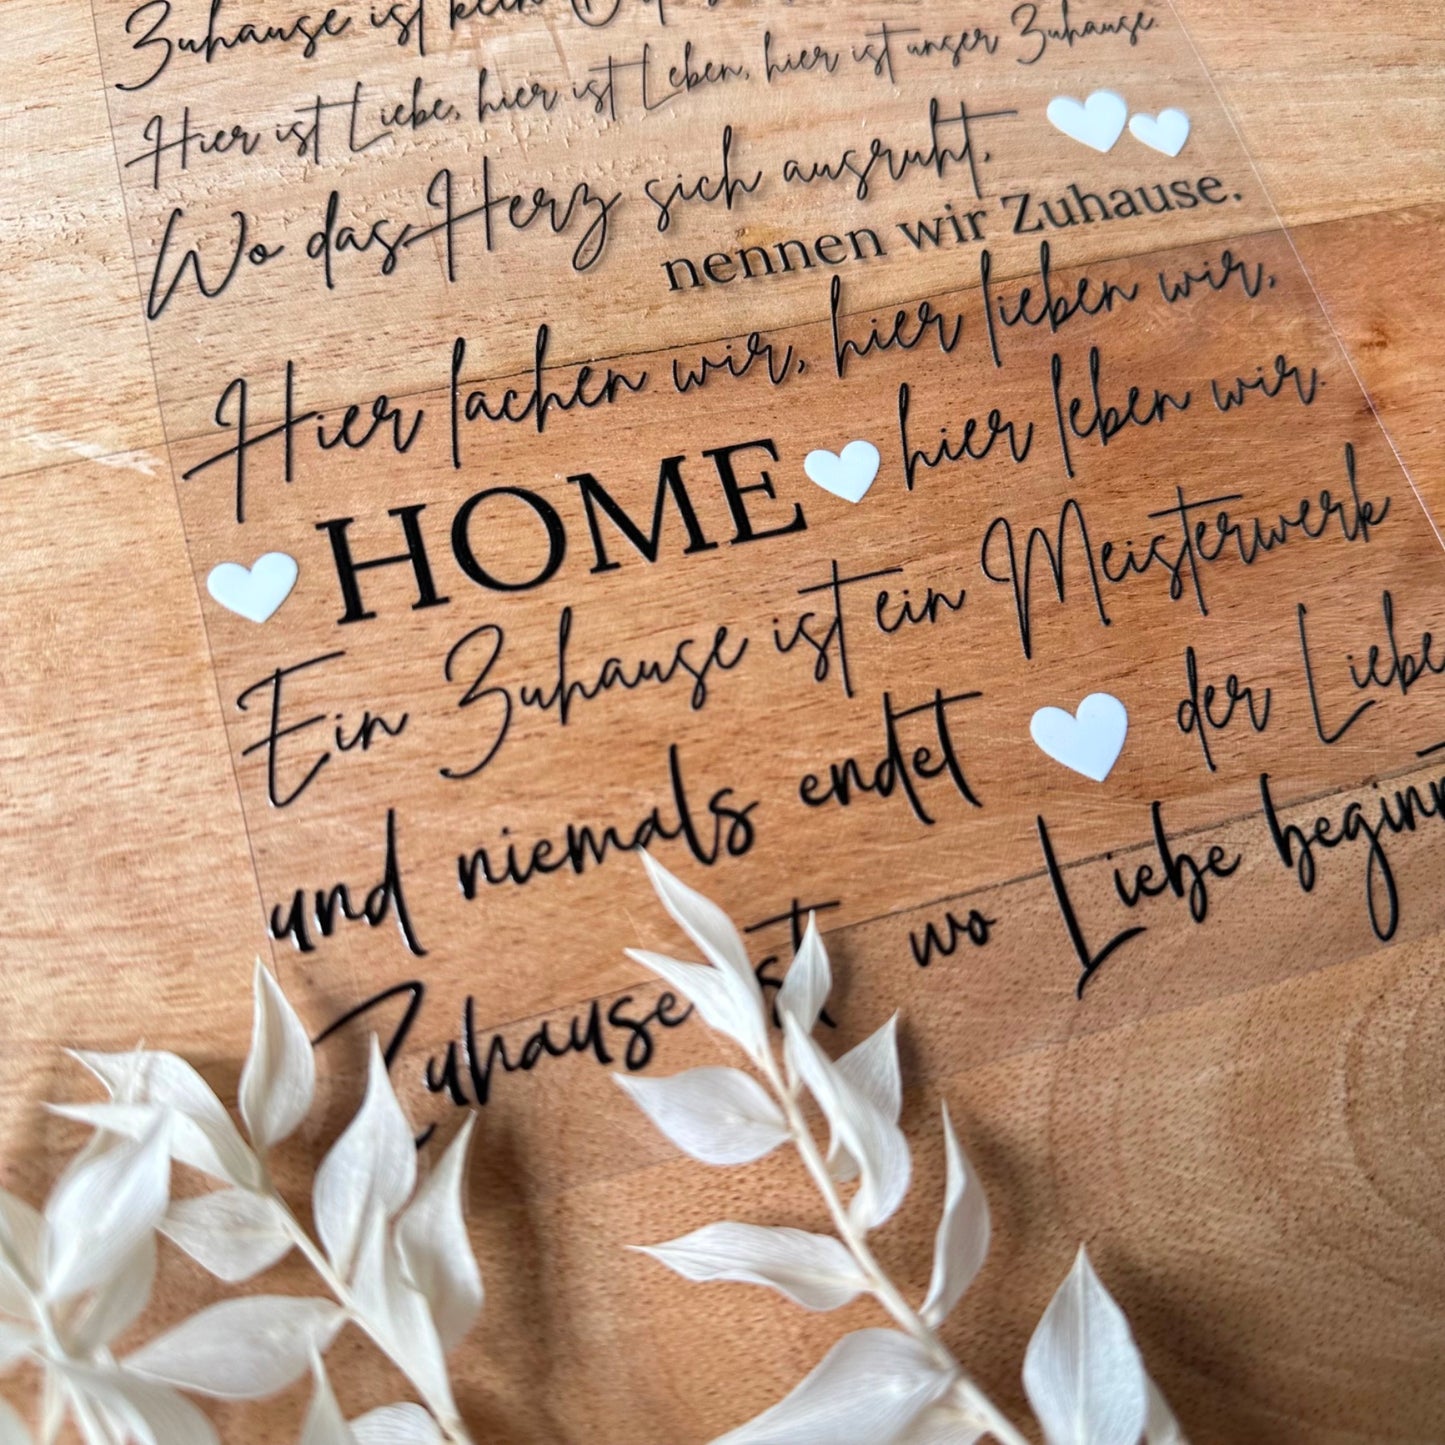 Zuhause ist kein
Hier ist Liebe, hier ist Leben, hier ist unser Zuhause
Wo das Herz sich ausruht,
nennen wir Zuhause.
Hier lachen wir, hier lieben wir,
HOME hier leben wir.
Ein Zuhause ist ein Meisterwerk
der Liebe
und niemals endet
Zuhause ist wo Liebe beginnt